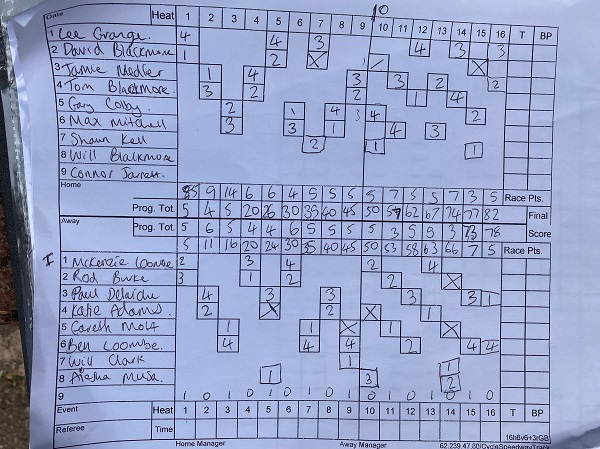 10
Date Heat 1 2 3 4 5 6 7 8 9 10 11 12 13 14 15 16 T BP
1 Lee Grange. 4 4 3 4 3 3
2 David Blackmore 1 2 X X
3 Jamie Medler 1 4 3 3 2 2
4 Tom Blackmore. 3 2 2 1 4
5 Gary Colby. 2 1 4 3 4 2
6 Max Mitchell 3 3 1 4 3
7 Shaun Kell 2 1 1
8 Will Blackmore
9 Connor Jarrett.
Home 5 9 14 6 6 4 5 5 5 5 7 5 5 7 3 5 Race Pts.
Prog. Tot. 5 4 5 20 26 30 35 40 45 50 57 62 67 74 77 82 Final
Away Prog. Tot. 5 6 5 4 4 6 5 5 5 5 3 5 5 3 73 78 Score
5 11 16 20 24 30 35 40 45 50 53 58 63 66 7 5 Race Pts.
1 McKenzie Loombe 2 3 4 2 4
2 Rod Burke 3 1 2 2 X
3 Paul Delaidu 4 3 3 3 3 1
4 Katie Adams. 2 X 2 X 1
5 Gareth Mott 1 1 X 1 X
6 Ben Loombe. 4 4 4 2 4 4
7 Will Clark 1 1
8 Aiesha Musa. 1 3 2
9 1 0 1 0 1 0 1 0 1 0 1 0 1 0 1 0
Event Heat 1 2 3 4 5 6 7 8 9 10 11 12 13 14 15 16 T BP
Referee Time 16h6v6+3rGB
Home Manager Away Manager 62.239.47.80/CycleSpeedwayTrack